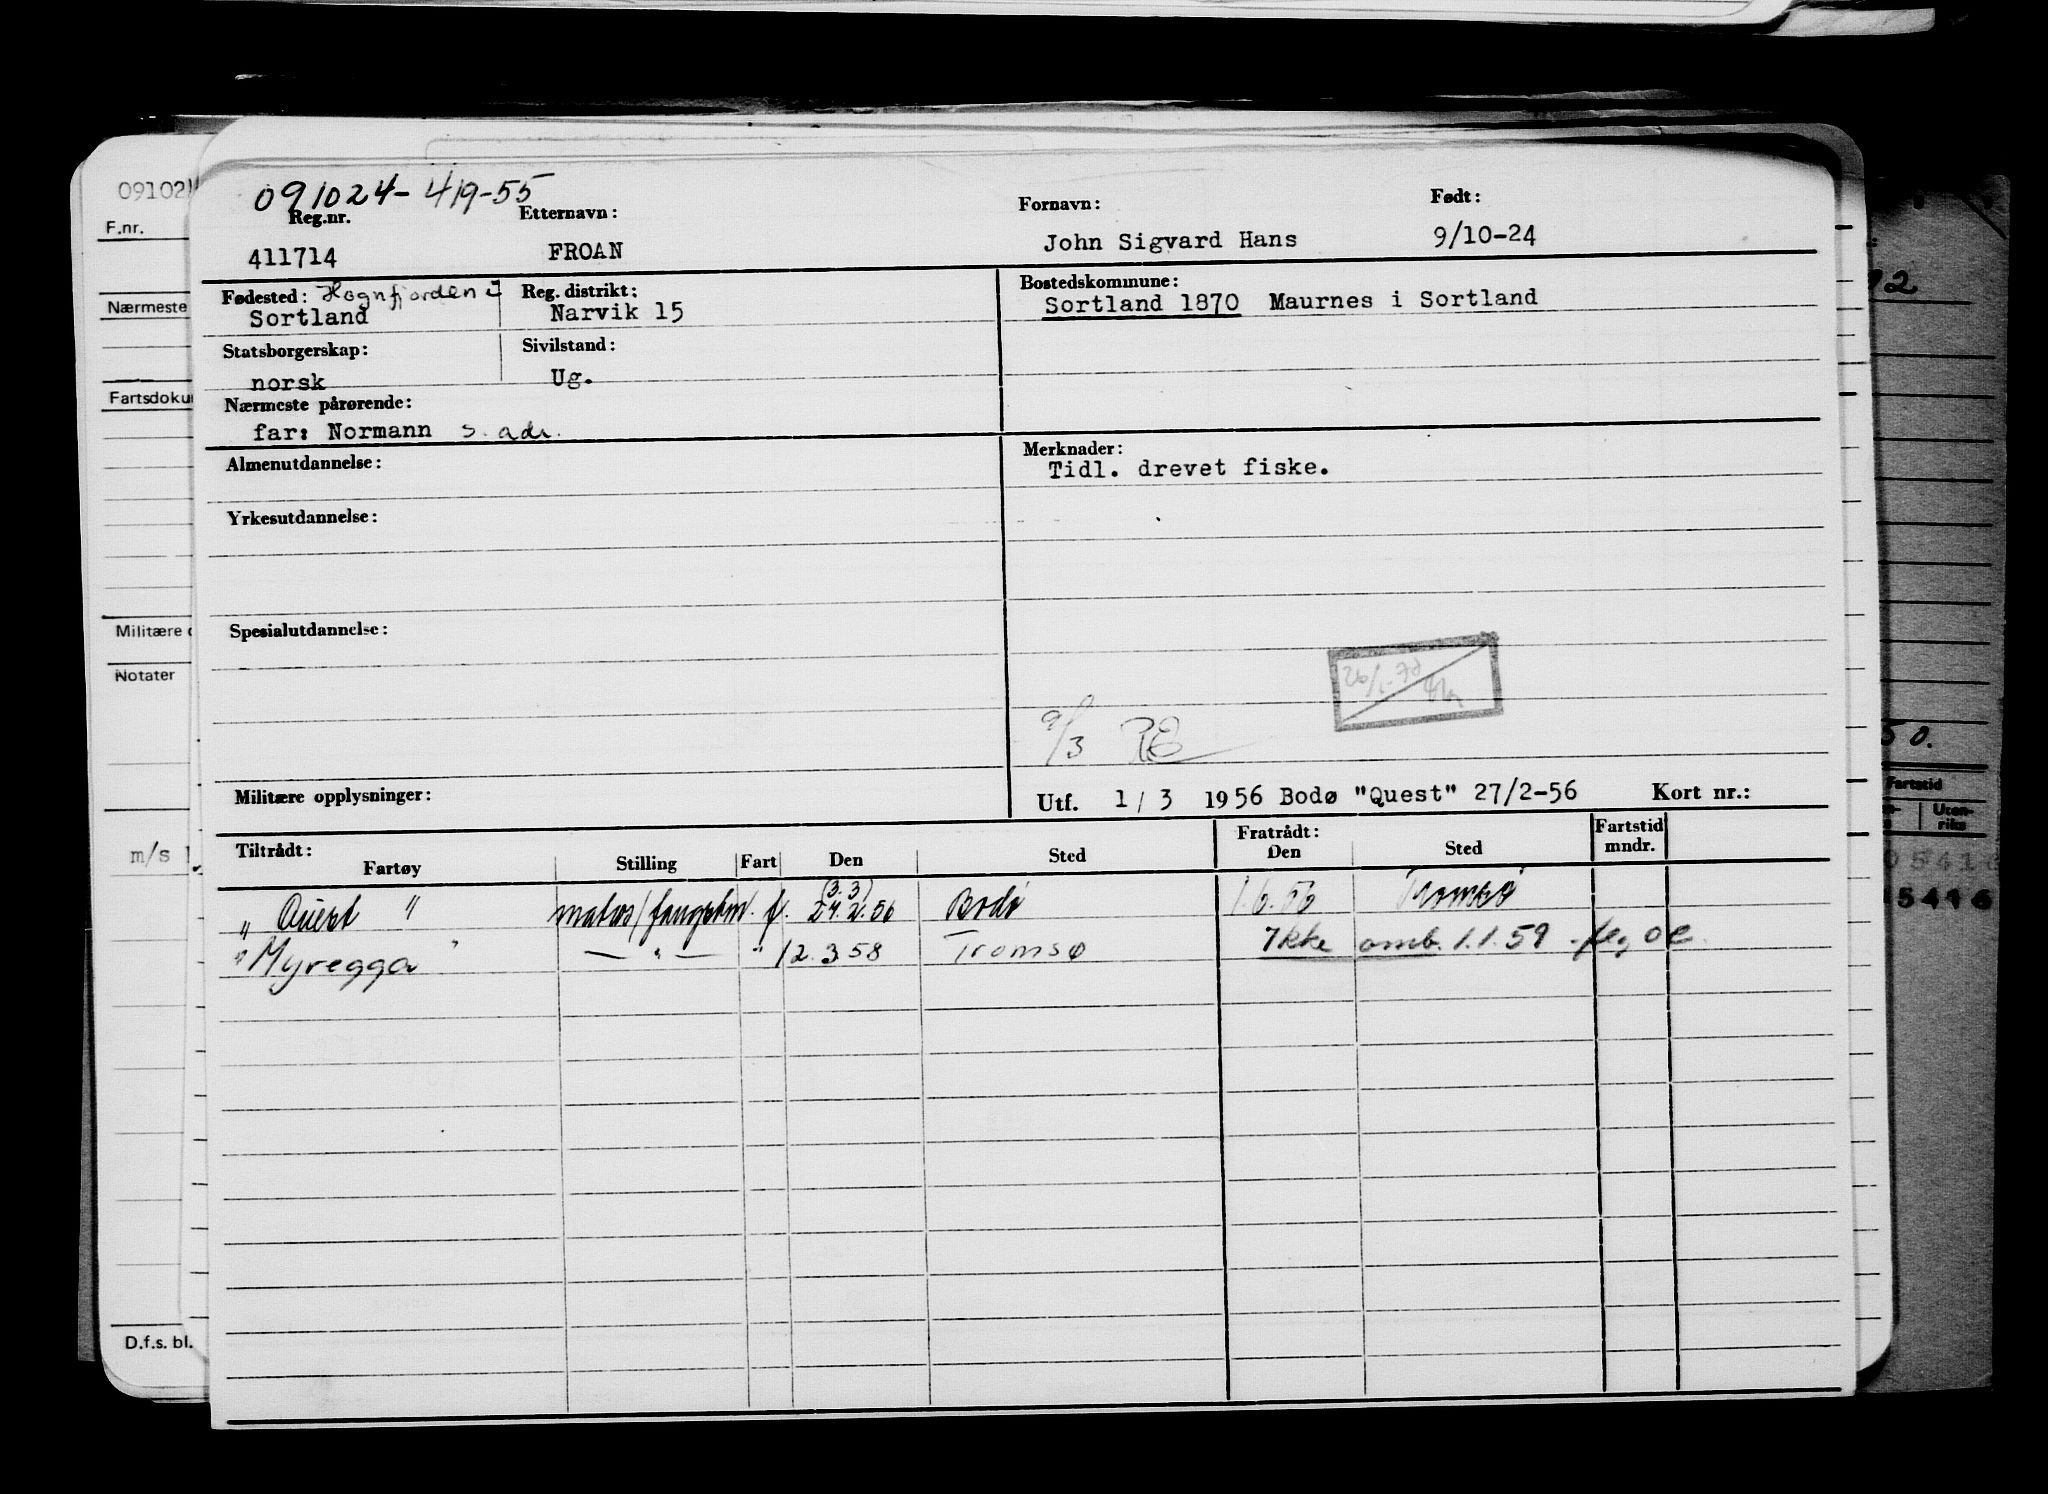 091024-419-55
Reg.nr. Etternavn: Fornavn: Født:
411714 FROAN John Sigvard Hans 9/10-24
Fødested: Hognfjorden i Reg. distrikt: Bostedskommune:
Sortland Narvik 15 Sortland 1870 Maurnes i Sortland
Statsborgerskap: Sivilstand:
norsk Ug.
Nærmeste pårørende:
far: Normann s. adr.
Almenutdannelse: Merknader:
Tidl. drevet fiske.
Yrkesutdannelse:
Spesialutdannelse:
9/3
Militære opplysninger: Utf. 1/3 1956 Bodø "Quest" 27/2-56 Kort nr.:
Tiltrådt: Fratrådt: Fartstid
Fartøy Stilling Fart Den Sted Den Sted mndr.
(3.3)
" Quest " matros/fangstm. f. 27.2.56 Bodø 1.6.56 Tromsø
" Myregga " — " — " 12.3.58 Tromsø Ikke omb. 1.1.59
091024
F.nr.
Nærmeste
Fartsdoku
Militære o
Notater
m/s
D.f.s. bl.
50.
Fartstid
Uten-
riks